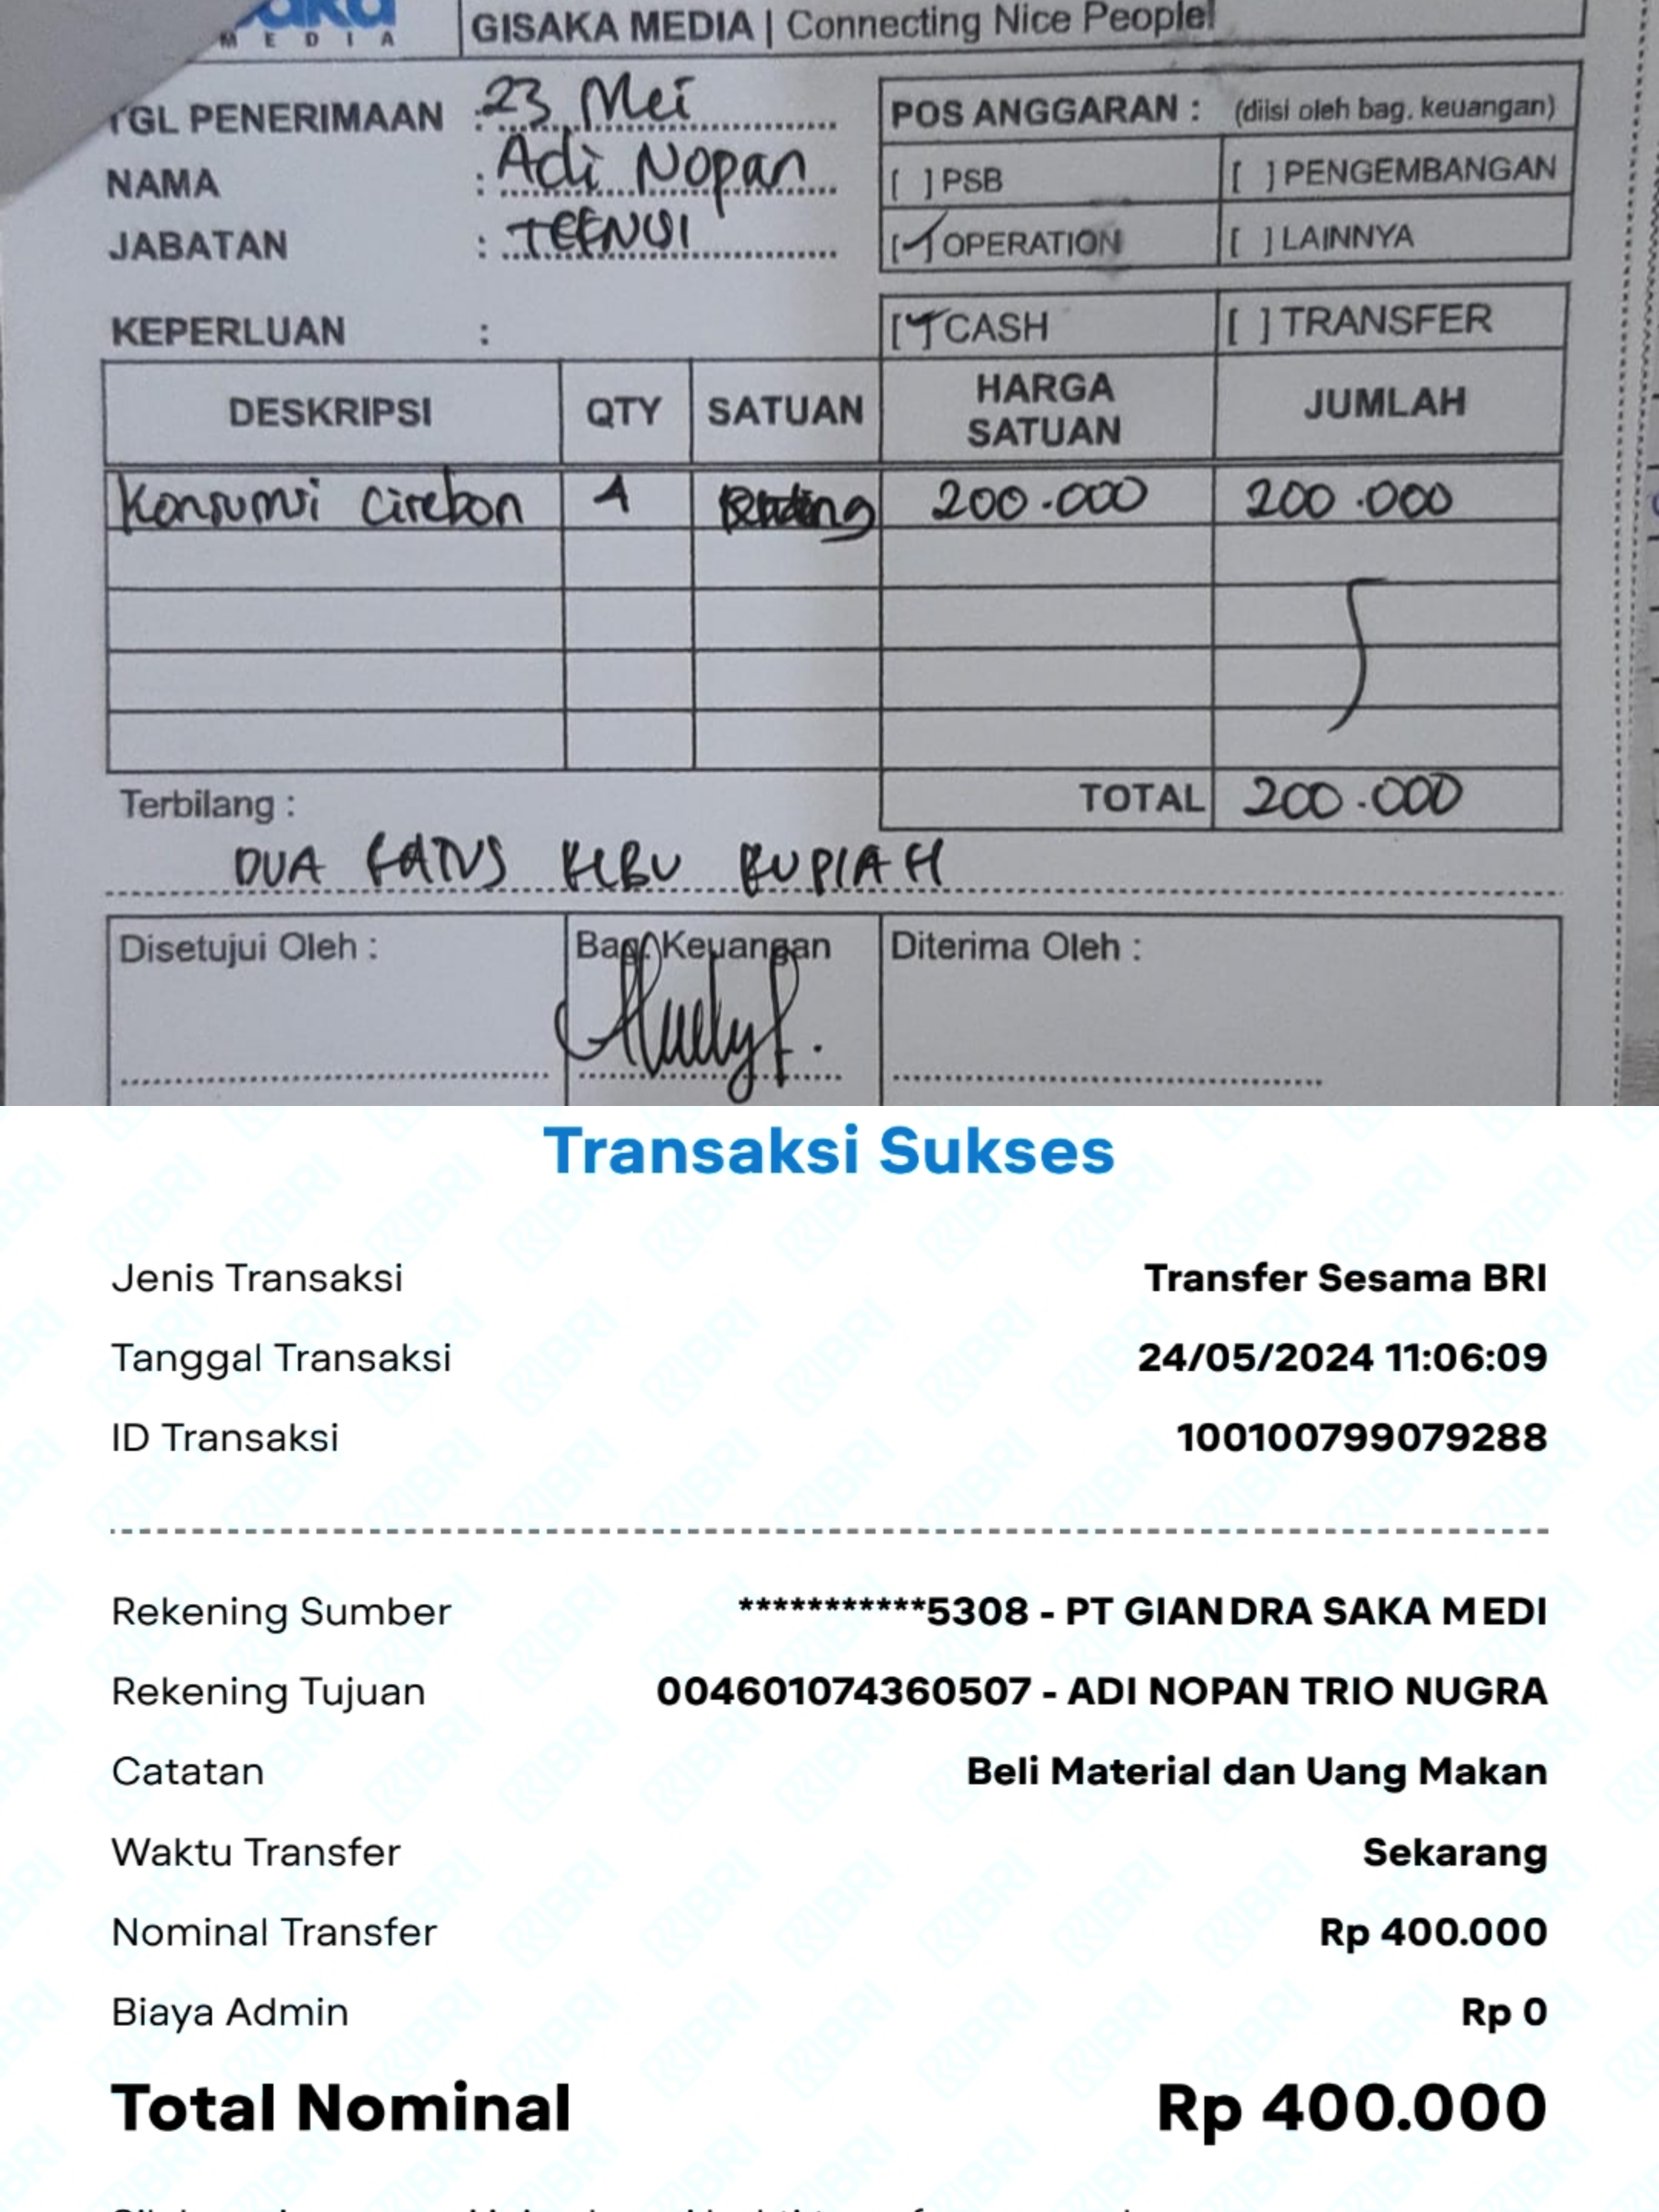 MEDIA
GISAKA MEDIA | Connecting Nice People!
TGL PENERIMAAN : 23 Mei
NAMA : Adi Nopan
JABATAN : TEKNISI
POS ANGGARAN : (diisi oleh bag. keuangan)
[ ] PSB [ ] PENGEMBANGAN
[✓] OPERATION [ ] LAINNYA
KEPERLUAN :
[✓] CASH [ ] TRANSFER
DESKRIPSI QTY SATUAN HARGA SATUAN JUMLAH
Konsumsi Cirebon 200.000 200.000
TOTAL 200.000
Terbilang :
DUA RATUS RIBU RUPIAH
Disetujui Oleh : Bag. Keuangan Diterima Oleh :
Transaksi Sukses
Jenis Transaksi Transfer Sesama BRI
Tanggal Transaksi 24/05/2024 11:06:09
ID Transaksi 100100799079288
Rekening Sumber ***********5308 - PT GIANDRA SAKA MEDI
Rekening Tujuan 004601074360507 - ADI NOPAN TRIO NUGRA
Catatan Beli Material dan Uang Makan
Waktu Transfer Sekarang
Nominal Transfer Rp 400.000
Biaya Admin Rp 0
Total Nominal Rp 400.000